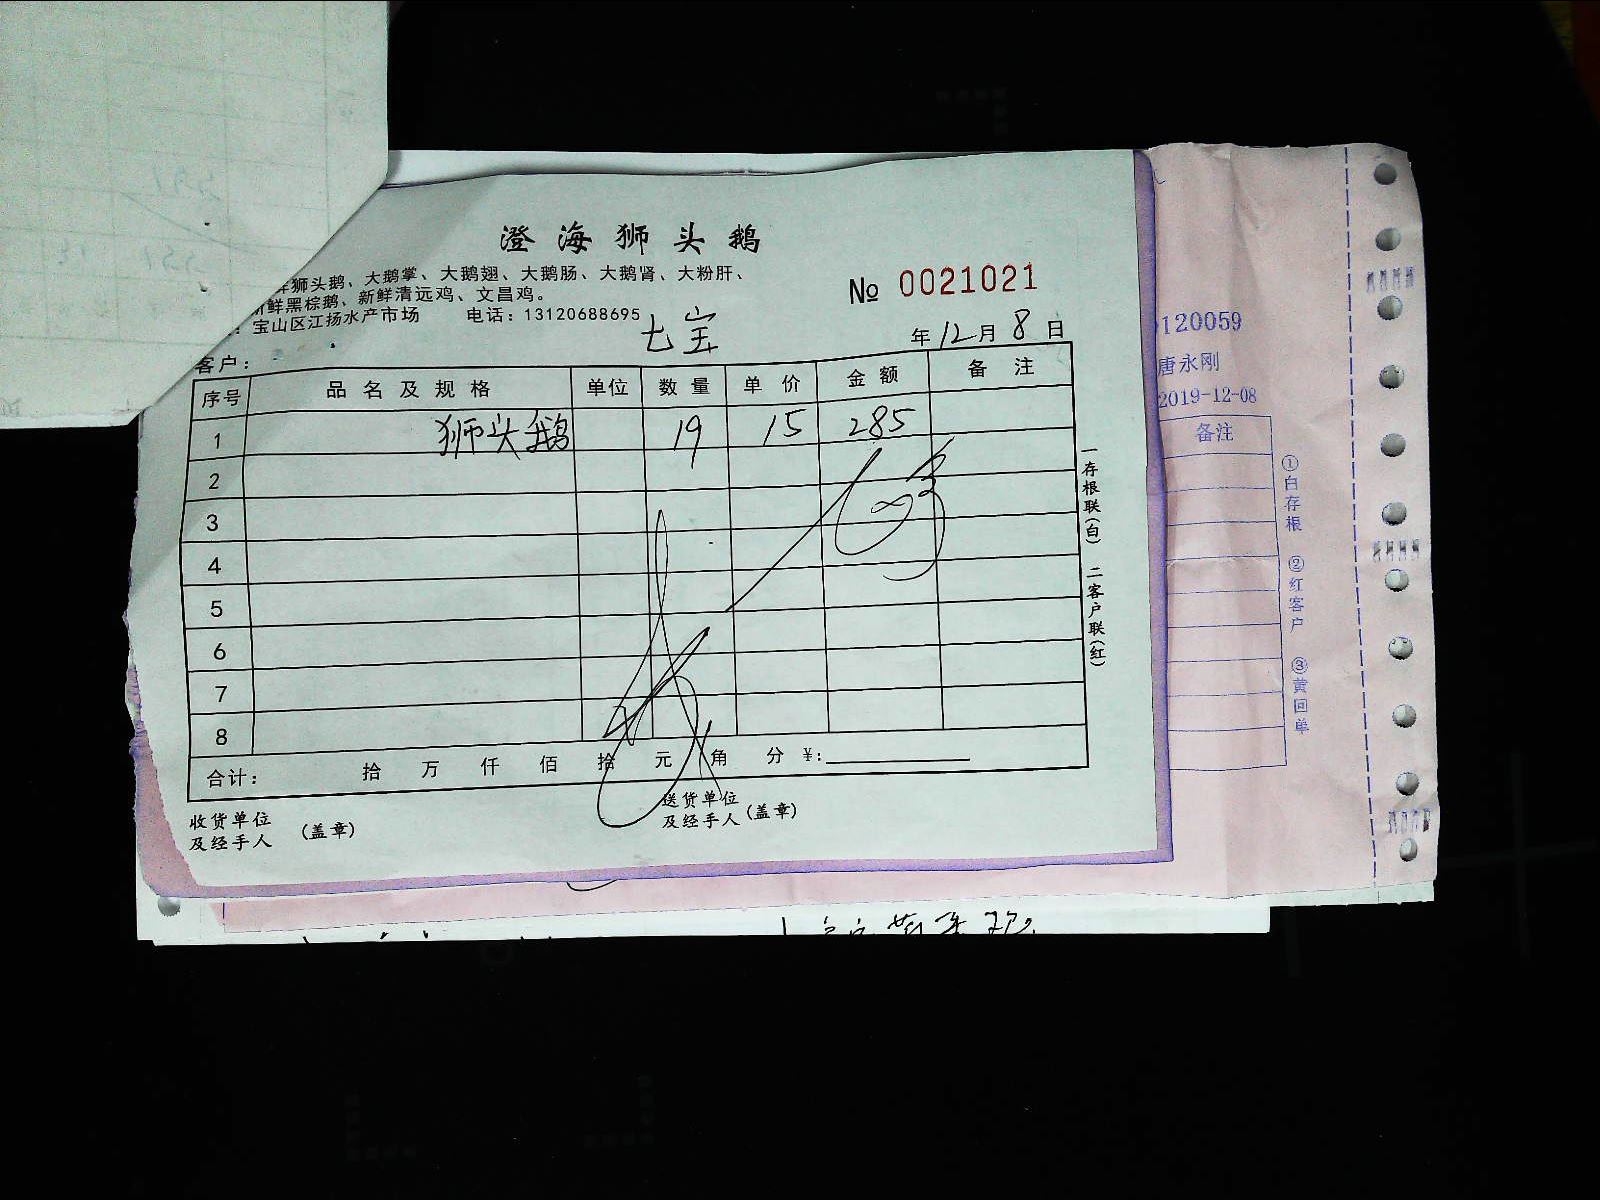 澄海狮头鹅
狮头鹅、大鹅掌、大鹅翅、大鹅肠、大鹅肾、大粉肝、
鲜黑棕鹅、新鲜清远鸡、文昌鸡。
宝山区江扬水产市场 电话：13120688695
№ 0021021
七宝
年 12 月 8 日
客户：
序号 品名及规格 单位 数量 单价 金额 备注
1 狮头鹅 19 15 285
2
3
4
5
6
7
8
合计： 拾 万 仟 佰 拾 元 角 分 ¥:
收货单位
及经手人 (盖章)
送货单位
及经手人 (盖章)
一存根联(白) 二客户联(红)
120059
唐永刚
2019-12-08
备注
①白存根 ②红客户 ③黄回单